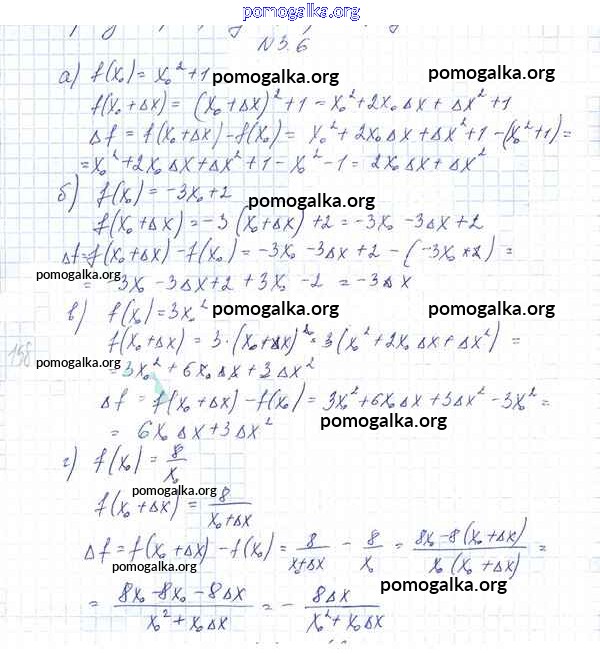 pomogalka.org
N 3.6
а) f(x₀) = x₀² + 1 pomogalka.org pomogalka.org
f(x₀ + Δx) = (x₀ + Δx)² + 1 = x₀² + 2x₀Δx + Δx² + 1
Δf = f(x₀ + Δx) - f(x₀) = x₀² + 2x₀Δx + Δx² + 1 - (x₀² + 1) =
= x₀² + 2x₀Δx + Δx² + 1 - x₀² - 1 = 2x₀Δx + Δx²
б) f(x₀) = -3x₀ + 2 pomogalka.org
f(x₀ + Δx) = -3(x₀ + Δx) + 2 = -3x₀ - 3Δx + 2
Δf = f(x₀ + Δx) - f(x₀) = -3x₀ - 3Δx + 2 - (-3x₀ + 2) =
pomogalka.org
= -3x₀ - 3Δx + 2 + 3x₀ - 2 = -3Δx
в) f(x₀) = 3x₀² pomogalka.org pomogalka.org
f(x₀ + Δx) = 3·(x₀ + Δx)² = 3(x₀² + 2x₀Δx + Δx²) =
158
pomogalka.org
= 3x₀² + 6x₀Δx + 3Δx²
Δf = f(x₀ + Δx) - f(x₀) = 3x₀² + 6x₀Δx + 3Δx² - 3x₀² =
= 6x₀Δx + 3Δx² pomogalka.org
г) f(x₀) = 8/x₀
pomogalka.org
f(x₀ + Δx) = 8/(x₀ + Δx)
Δf = f(x₀ + Δx) - f(x₀) = 8/(x₀+Δx) - 8/x₀ = (8x₀ - 8(x₀ + Δx))/(x₀(x₀ + Δx)) =
pomogalka.org pomogalka.org
= (8x₀ - 8x₀ - 8Δx)/(x₀² + x₀Δx) = - 8Δx/(x₀² + x₀Δx)